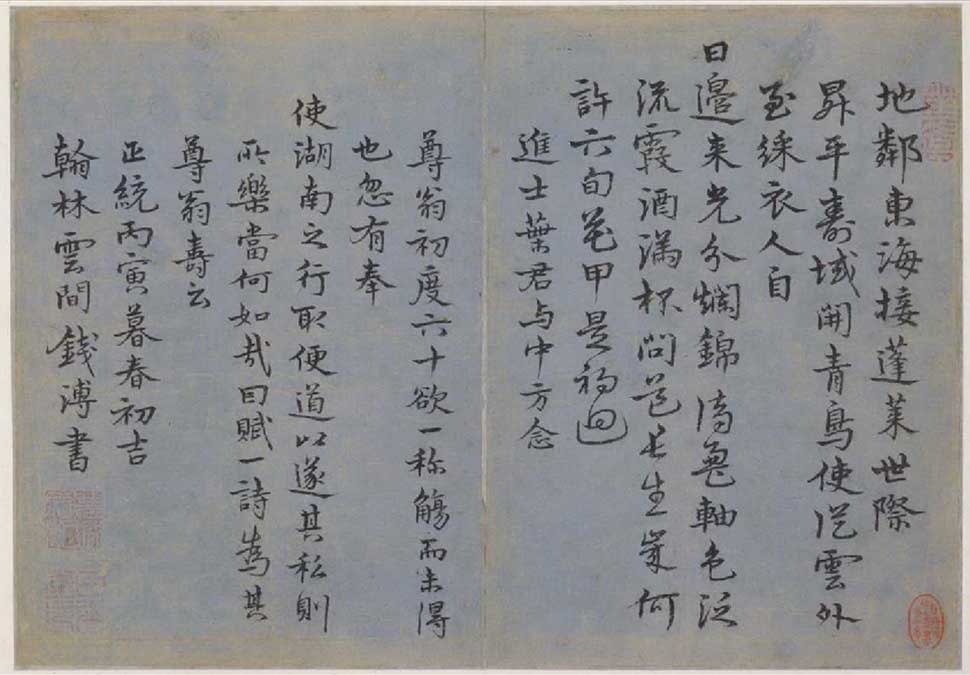 地鄰東海接蓬萊世際
昇平壽域開青鳥使從雲外
至綵衣人自
日邊来光分爛錦軸色泛
流霞酒滿杯問長生何
許六旬花甲是初迴
進士葉君与中方念
尊翁初度六十欲一称觴而未得
也忽有奉
使湖南之行取便道以遂其私則
所樂當何如哉曰賦一詩為其
尊翁壽云
正統丙寅暮春初吉
翰林雲間錢溥書